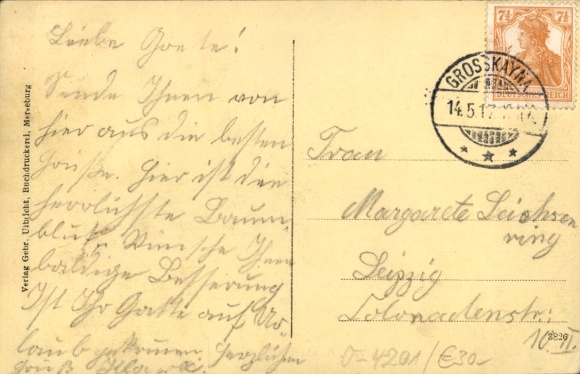 Liebe Grete!
Sende Ihnen von
hier aus die besten
Grüße. Hier ist die
herrlichste Baum
blüt. Wünsche Ihnen
baldige Besserung
Ist Ihr Gatte auf Ur
laub gekommen. Herzlichen
Gruß
Verlag Gebr. Ulbricht, Buchdruckerei, Merseburg
7½ 7½
DEUTSCHES REICH
GROSSKAYNA
14.5.17
* * *
Frau
Margarete Leichsen
ring
Leipzig
Colonadenstr.
10 II.
3826